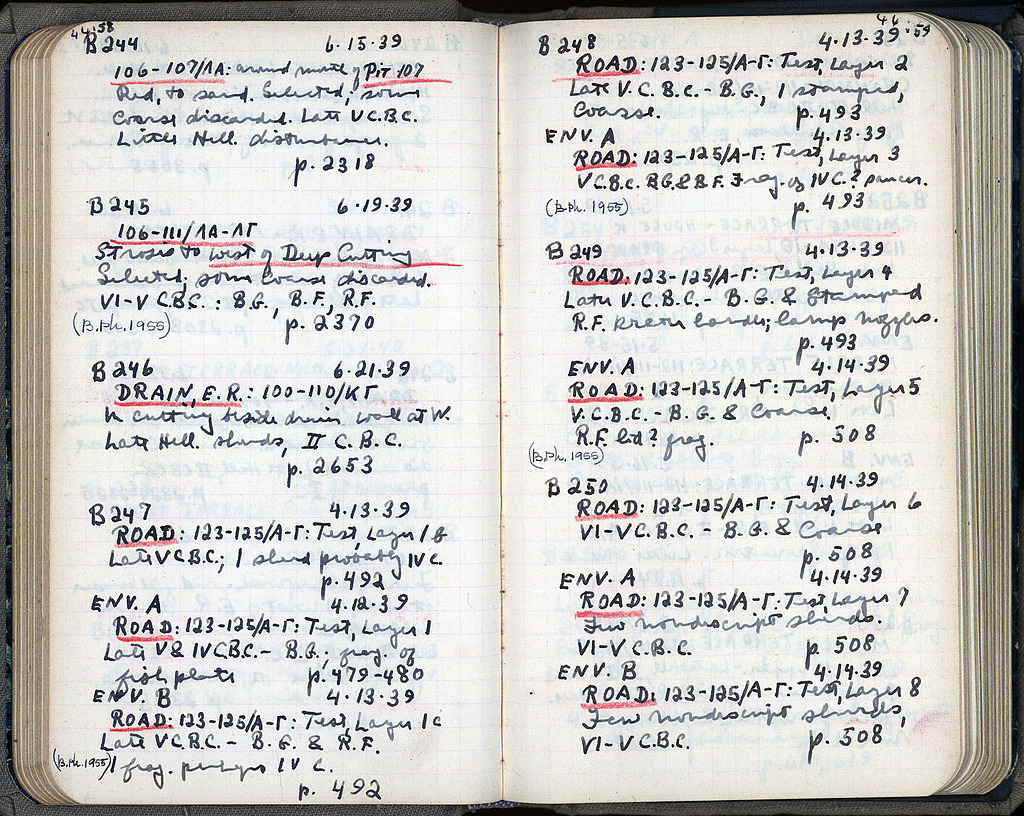 44:58
B 244 6.15.39
106-107/ΛΑ: around mouth of Pit 107
Red, to sand. Selected; some
Coarse discarded. Late V C.B.C.
Little Hell. disturbance.
p. 2318
B 245 6.19.39
106-111/ΛΑ-ΛΓ
Strosis to West of Deep Cutting
Selected; some Coarse discarded.
VI-V C.B.C.: B.G., B.F., R.F.
(B.Ph. 1955) p. 2370
B 246 6.21.39
DRAIN, E.R.: 100-110/ΚΓ
In cutting beside drain, wall at W.
Late Hell. sherds, II C.B.C.
p. 2653
B 247 4.13.39
ROAD: 123-125/Α-Γ: Test, Layer 1 b
Late V C.B.C.; 1 sherd probably IV C.
p. 492
ENV. A 4.12.39
ROAD: 123-125/Α-Γ: Test, Layer 1
Late V & IV C.B.C. - B.G., frag. of
fish plate p. 479-480
ENV. B 4.13.39
ROAD: 123-125/Α-Γ: Test, Layer 1 c
Late V C.B.C. - B.G. & R.F.
(B.Ph. 1955) 1 frag. perhaps IV C.
p. 492
46:59
B 248 4.13.39
ROAD: 123-125/Α-Γ: Test, Layer 2
Late V.C.B.C. - B.G., 1 stamped,
Coarse. p. 493
ENV. A 4.13.39
ROAD: 123-125/Α-Γ: Test, Layer 3
V C.B.C. B.G. & B.F. Frag. of IV C.? saucer.
(B.Ph. 1955) p. 493
B 249 4.13.39
ROAD: 123-125/Α-Γ: Test, Layer 4
Late V C.B.C. - B.G. & Stamped
R.F. krater handle; lamp nozzles.
p. 493
ENV. A 4.14.39
ROAD: 123-125/Α-Γ: Test, Layer 5
V.C.B.C. - B.G. & Coarse,
R.F. lid? frag. p. 508
(B.Ph. 1955)
B 250 4.14.39
ROAD: 123-125/Α-Γ: Test, Layer 6
VI-V C.B.C. - B.G. & Coarse
p. 508
ENV. A 4.14.39
ROAD: 123-125/Α-Γ: Test, Layer 7
Few nondiscript sherds.
VI-V C.B.C. p. 508
ENV. B 4.14.39
ROAD: 123-125/Α-Γ: Test, Layer 8
Few nondiscript sherds,
VI-V C.B.C. p. 508